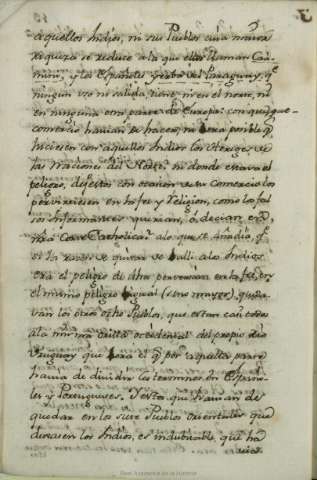 aquellos Indios, ni sus Pueblos cuia maior
riqueza se reduce a la que ellos llaman Caa
mini, y los Españoles yerba del Paraguay, qe
ningun uso ni salida tiene, ni en el norte, ni
en ninguna otra parte de Europa: con que que
comercio havian de hacer, ni era posible q
hiciesen con aquellos Indios los Hereges de
las Naciones del Norte; ni donde estava el
peligro, de que estos con ocasion de su Comercio los
pervirtiesen en la fee, y Religion, como los fal
sos Informantes querian, o decian en
nra Corte Catholica? a lo que se Añadio, qe
si la razon de quitar de alli a los Indios
era el peligro de dha perversion en la fee, en
el mismo peligro igual (sino mayor), queda
van los otros ocho Pueblos, que estan casi todos
a la misma orilla occidental del propio rio
Uruguay que era el qe por aquella parte
havia de dividir los terminos de Españo
les y Portugueses. Y esta que havian de
quedar en los siete Pueblos orientales que
dexasen los Indios, es indubitable, que ha
vian
Real Academia de la Historia